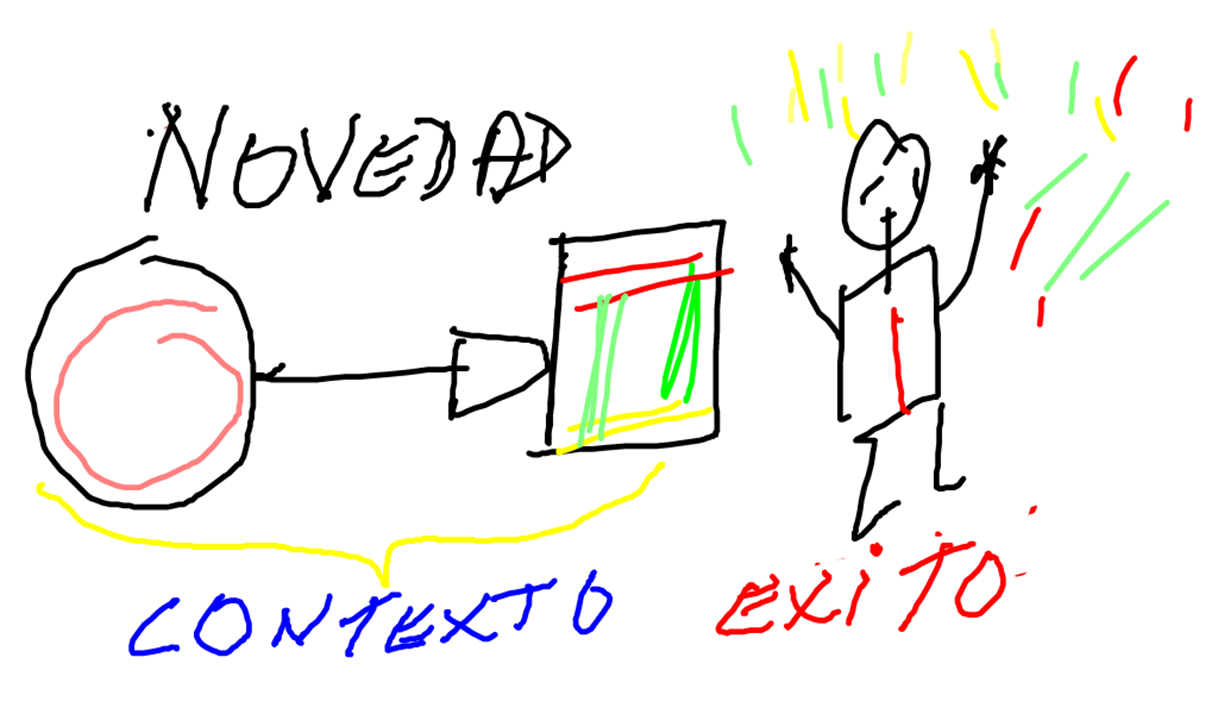 NOVEDAD
CONTEXTO
EXiTO